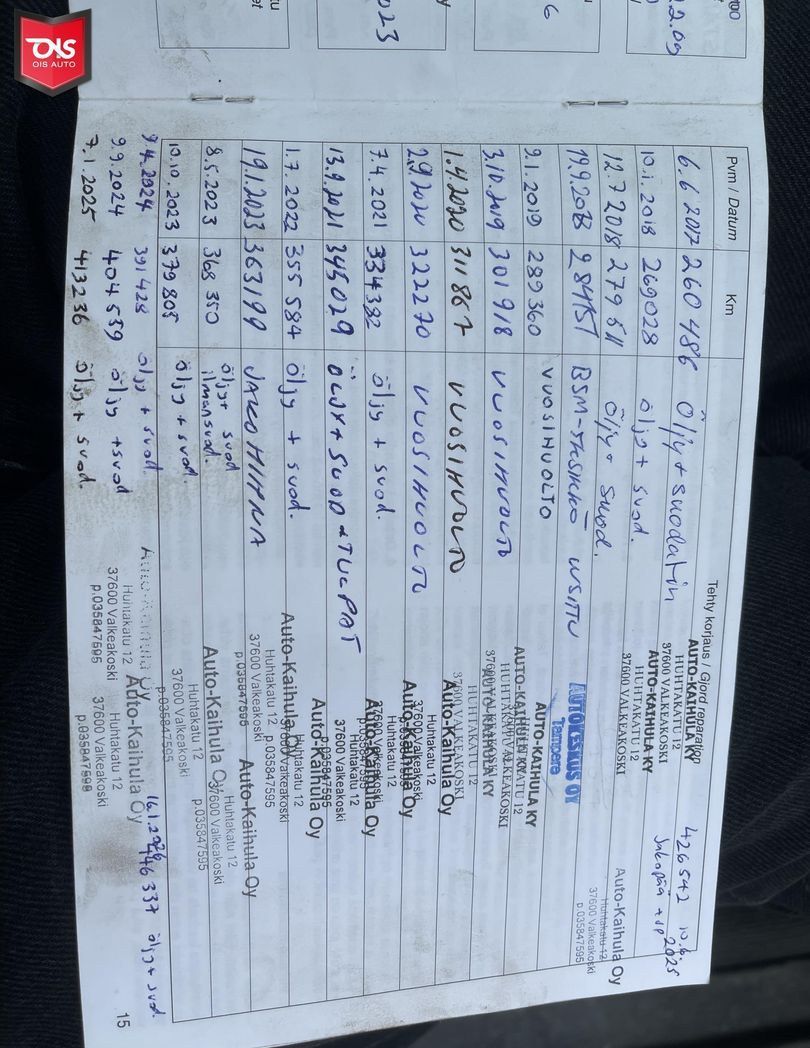 OIS
OIS AUTO
Pvm / Datum Km Tehty korjaus / Gjord reparation
6.6 2017 260 486 Öljy + suodatin
AUTO-KAIHULA KY
HUHTAKATU 12
37600 VALKEAKOSKI
10.1.2018 269028 öljy + suod.
AUTO-KAIHULA KY
HUHTAKATU 12
37600 VALKEAKOSKI
12.7 2018 279 511 Öljy + suod.
Auto-Kaihula Oy
Huhtakatu 12
37600 Valkeakoski
p.035847595
AUTOKESKUS OY
Tampere
9.1.2019 289360 VUOSIHUOLTO
AUTO-KAIHULA KY
HUHTAKATU 12
37600 VALKEAKOSKI
3.10.2019 301 918 VUOSIHUOLTO
AUTO-KAIHULA KY
HUHTAKATU 12
37600 VALKEAKOSKI
1.4.2020 311 867 VUOSIHUOLTO
Auto-Kaihula Oy
Huhtakatu 12
37600 Valkeakoski
2.9.2020 322270 VUOSIHUOLTO
Auto-Kaihula Oy
Huhtakatu 12
37600 Valkeakoski
p.035847595
7.4.2021 334382 öljy + suod.
Auto-Kaihula Oy
Huhtakatu 12
37600 Valkeakoski
p.035847595
13.9.2021 345029 ÖLJY + SUOD + TULPAT
Auto-Kaihula Oy
Huhtakatu 12
37600 Valkeakoski
p.035847595
1.7.2022 355 584 öljy + suod.
Auto-Kaihula Oy
Huhtakatu 12
37600 Valkeakoski
p.035847595
19.1.2023 363199 JAKOHIHNA
Auto-Kaihula Oy
Huhtakatu 12
37600 Valkeakoski
p.035847595
8.5.2023 368 350 öljy + suod
ilmansuod.
Auto-Kaihula Oy
Huhtakatu 12
37600 Valkeakoski
p.035847595
10.10.2023 379805 öljy + suod.
9.4.2024 391428 öljy + suod.
Auto-Kaihula Oy
Huhtakatu 12
37600 Valkeakoski
p.035847595
9.9.2024 404539 öljy + suod
Auto-Kaihula Oy
Huhtakatu 12
37600 Valkeakoski
p.035847595
7.1.2025 413236 öljy + suod.
426542 10.6.2025
Jakopää + vp
446 337 öljy + suod.
15